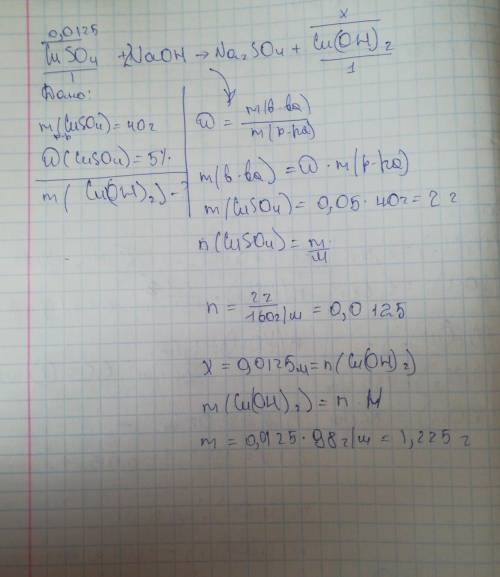 0,0125 x
CuSO4 + 2NaOH → Na2SO4 + Cu(OH)2
1 1
Дано:
m(CuSO4) = 40 г
р-р
ω(CuSO4) = 5%
m(Cu(OH)2) - ?
ω = m(в-ва) / m(р-ра)
m(в-ва) = ω · m(р-ра)
m(CuSO4) = 0,05 · 40г = 2 г
n(CuSO4) = m/M
n = 2г / 160г/м = 0,0125
x = 0,0125м = n(Cu(OH)2)
m(Cu(OH)2) = n · M
m = 0,0125 · 98 г/м = 1,225 г